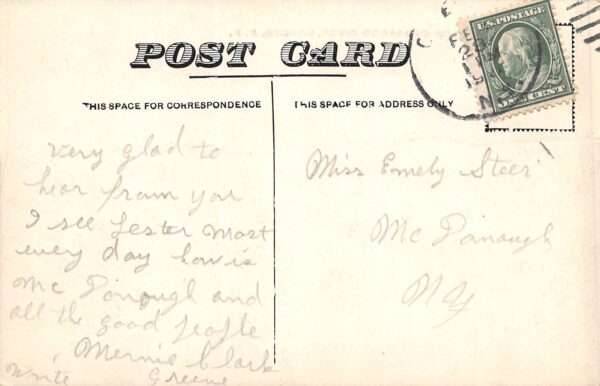 POST CARD
THIS SPACE FOR CORRESPONDENCE
THIS SPACE FOR ADDRESS ONLY
U.S. POSTAGE
ONE CENT
FEB
very glad to
hear from you
I see Lester most
every day how is
Mc Donough and
all the good people
Mernie Clark
write Greene
Miss Emely Steer
Mc Donough
NY